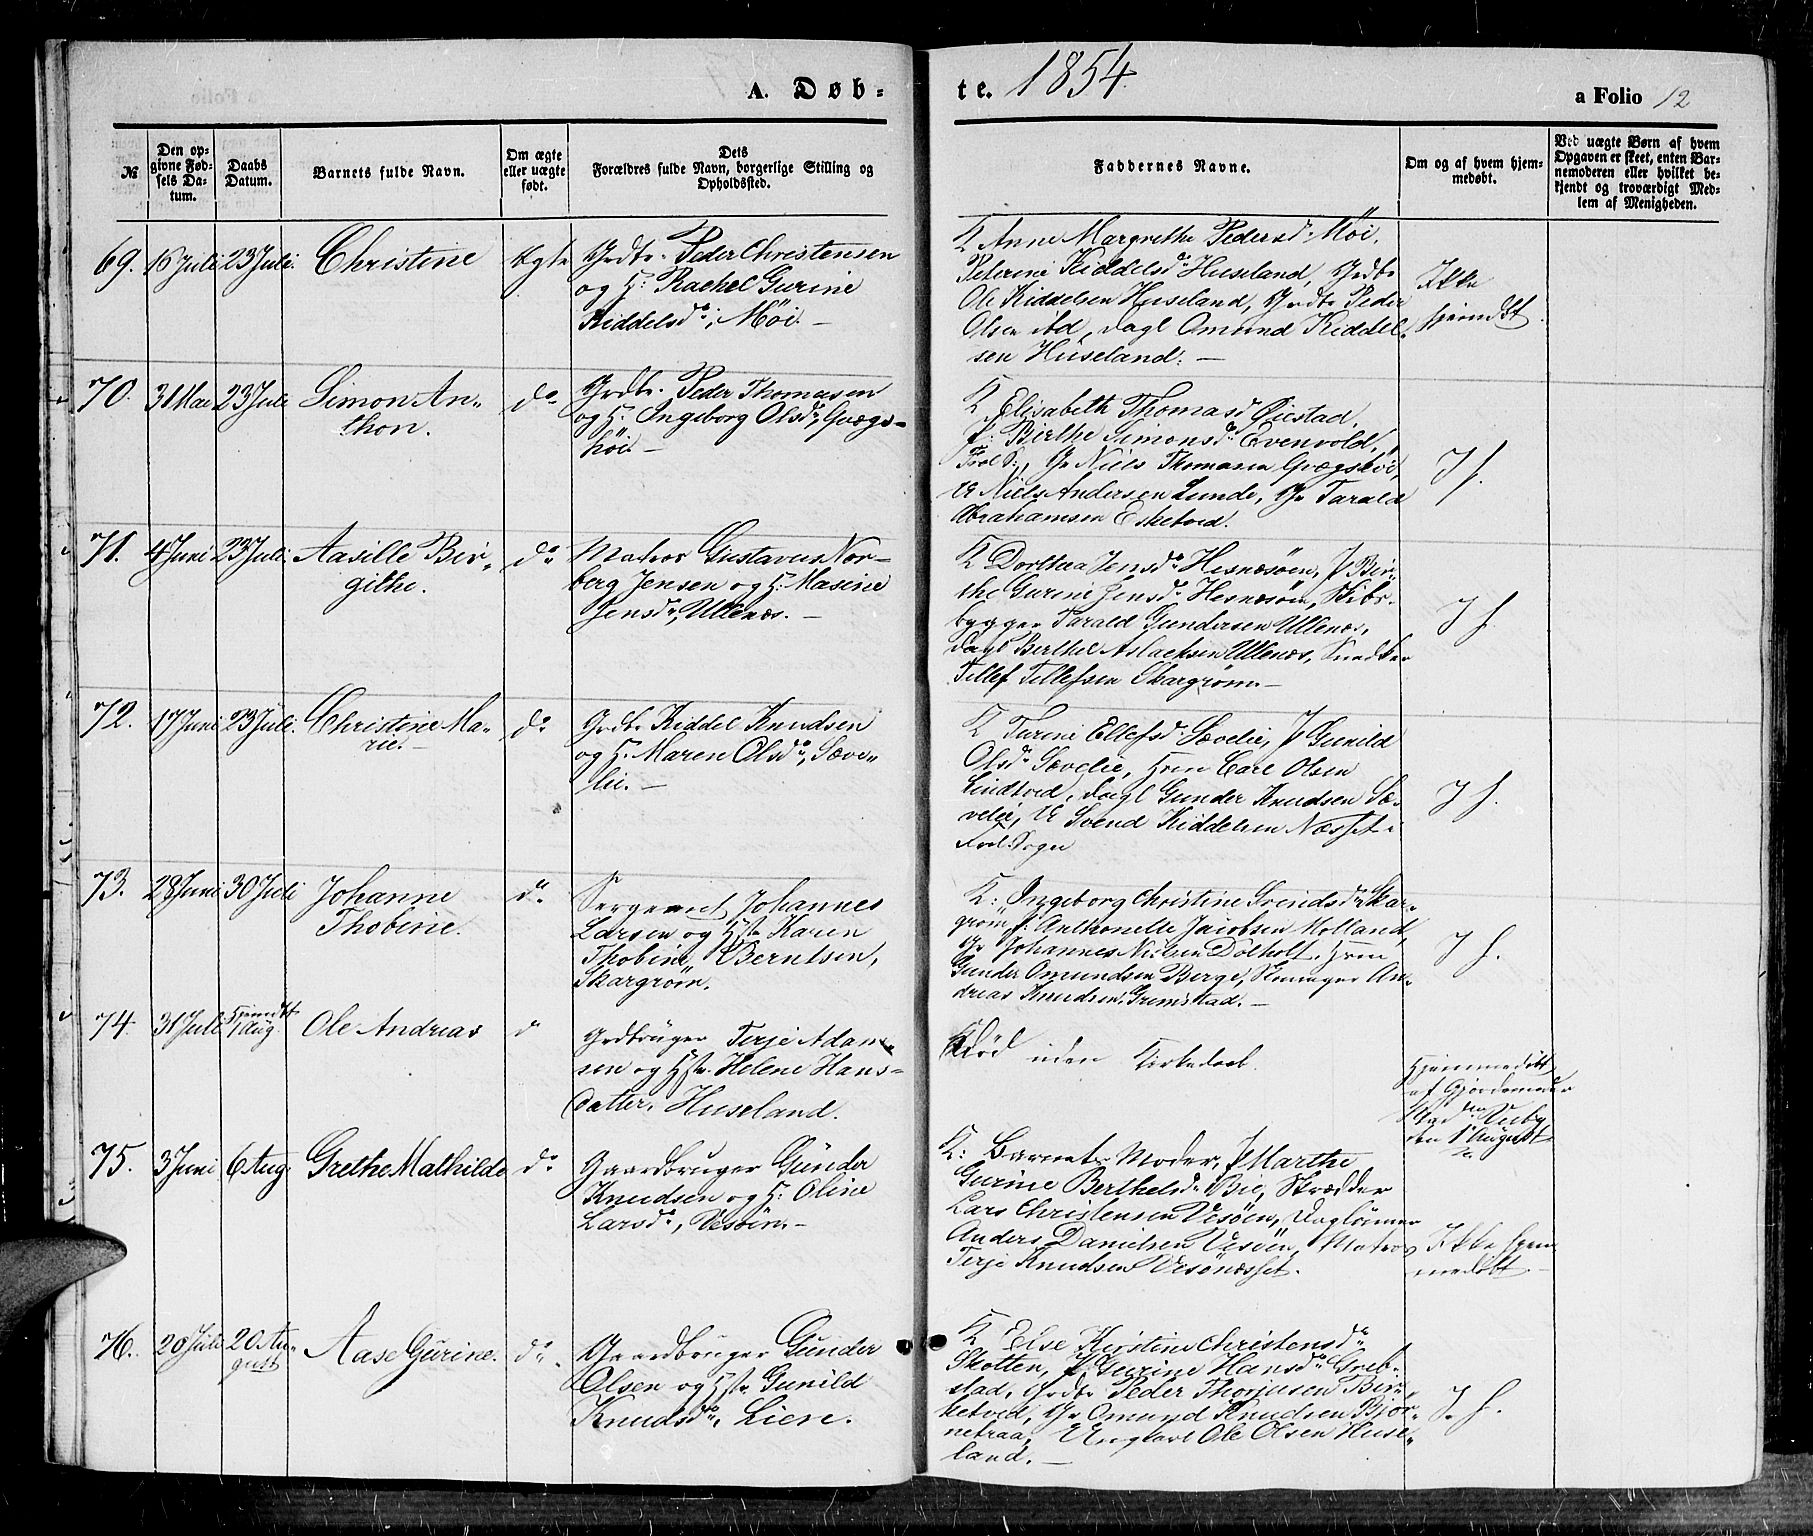 A. Døb-
te. 1854.
a Folio 12
№
Den op-
givne Fød-
sels Da-
tum.
Daabs
Datum.
Barnets fulde Navn.
Om ægte
eller uægte
født.
Dets
Forældres fulde Navn, borgerlige Stilling og
Opholdssted.
Faddernes Navne.
Om og af hvem hjem-
medøbt.
Ved uægte Børn af hvem
Opgaven er skeet, enten Bar-
nemoderen eller hvilket be-
kjendt og troværdigt Med-
lem af Menigheden.
69. 16 Juli 23 Juli. Christine
Ægte
Grdbr. Peder Christensen
og H. Rachel Gurine
Kiddelsdr, Möi. —
K Anne Margrethe Pedersd. Möi,
Peterine Kiddelsdr Huseland, Grdbr
Ole Kiddelsen Huseland, Grdbr Peder
Olsen ibd, Dagl Omund Kiddel-
sen Huseland. —
Ikke
hjemdbt.
70. 31 Mai 23 Juli
Simon An-
thon.
do
Grdbr. Peder Thomasen
og H. Ingeborg Olsdr, Gvægs-
höi. —
K Elisabeth Thomasd Øiestad,
P: Birthe Simonsdr Evenvold,
Frol. S:, Gr Niels Thomasen Gvægshöi,
U Niels Andersen Lunde, Gr Tarald
Abrahamsen Esketved.
I h.
71. 4 Juni 23 Juli.
Aasille Bir-
githe.
do
Matros Gustavus Nor-
berg Jensen og H. Masine
Jensdr, Ullenæs. —
K Dorthea Jensdr Hesnæsöen, P Bir-
the Gurine Jensdr Hesnæsöen, Skibs-
bygger Tarald Gundersen Ullenæs,
Dagl Berthel Aslachsen Ullenæs, Snedker
Tellef Tellefsen Skargrøm. —
I h.
72. 17 Juni 23 Juli.
Christine Ma-
rie. —
do
Grdbr Kiddel Knudsen
og H. Maren Olsdr, Sæve-
lii. —
K Turine Ellefsdr Sævelie, P Gunild
Olsdr Sævelie, Hrm Carl Olsen
Lindtved, Dagl Gunder Knudsen Sæ-
velie, U Svend Kiddelsen Næsset i
Frol. Sogn
I h.
73. 28 Juni 30 Juli
Johanne
Thobine.
do
Sergeant Johannes
Larsen og Hstr Karen
Thobine Berntsen,
Skargrøm.
K: Ingeborg Christine Svendsdr Skar-
grøm, P. Anthonette Jacobsen Molland,
Gr Johannes Nielsen Dolholt, Hrm
Gunder Omundsen Berge, Styrmand An-
dreas Knudsen, Grimstad. —
I h.
74. 31 Juli
Hjemdbt
1 Aug
Ole Andreas
do
Grdbrüger Terje Adam-
sen og Hstr. Helene Hans-
datter, Huseland.
Død uden Kirkedaab.
Hjemmedøbt
af Gjordemoder
den 1 August
75. 3 Juni 6 Aug. Grethe Mathilde
do
Gaardbruger Gunder
Knudsen og H. Oline
Larsdr, Vesöen. —
K: Barnets Moder, P Marthe
Gurine Berthelsdr Bie, Skrædder
Lars Christensen Vesöen, Daglönner
Anders Danielsen Vesöen, Matros
Terje Knudsen Vesönæsset.
Ikke hjem
medøbt
76. 20 Juli
20 Au-
gust
Aase Gurine.
do.
Gaardbruger Gunder
Olsen og Hstr Gunild
Knudsdr, Liere.
K Else Kirstine Christensdr
Skotten, P Gurine Hansdr Greb-
stad, Grdbr Peder Thorjusen Bir-
ketved, Gr Omund Knudsen Bjor-
netraa, Ungkarl Ole Olsen Huse-
land. —
I. h.